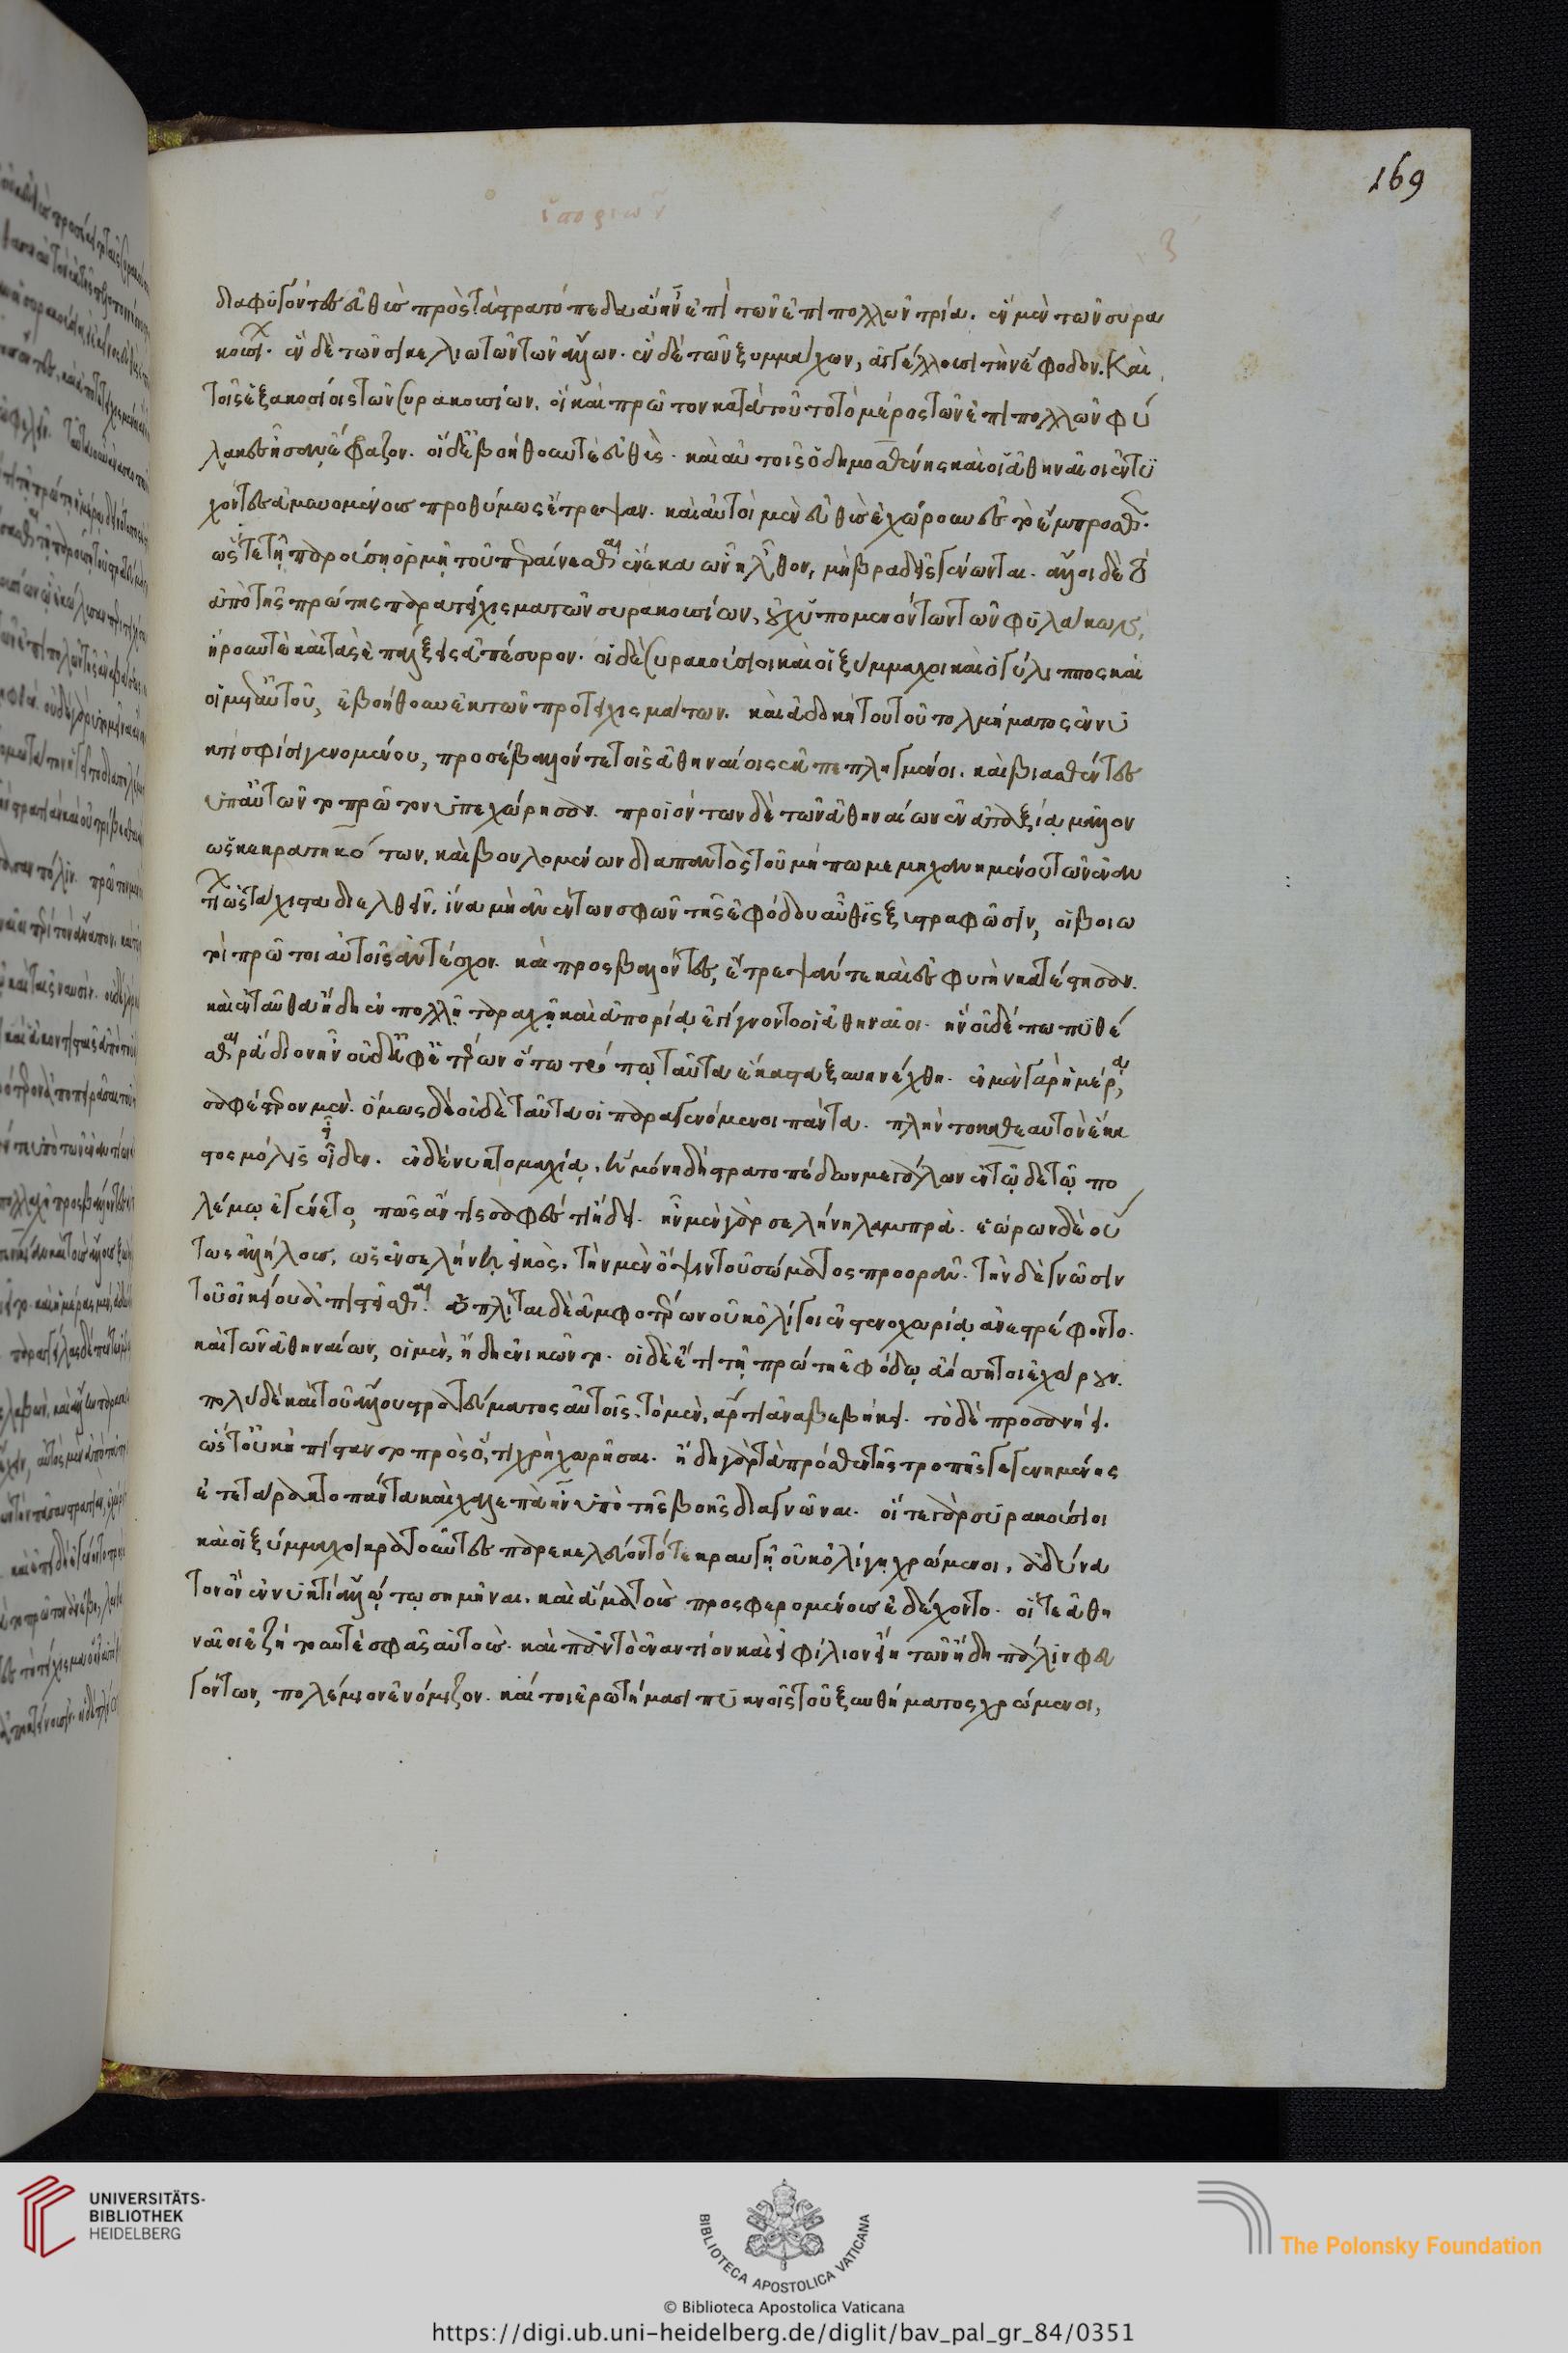 διαφυγόντες εὐθὺς πρὸς τὰ στρατόπεδα ἃ ἦν ἐπὶ τῶν ἐπιπολλῶν τρία. ἓν μὲν τῶν συρα
κουσί. ἓν δὲ τῶν σικελιωτῶν τῶν ἄλλων. ἓν δὲ τῶν ξυμμάχων, ἀγγέλλουσι τὴν ἔφοδον. Καὶ
τοῖς ἑξακοσίοις τῶν συρακουσίων. οἳ καὶ πρῶτον κατὰ τοῦτο τὸ μέρος τῶν ἐπιπολλῶν φύ
λακες ἦσαν, ἔφραζον. οἱ δ' ἐβοήθουν τὲ εὐθὺς. καὶ αὐτοῖς ὁ δημοσθένης καὶ οἱ ἀθηναῖοι ἐντυ
χόντες ἀμυνομένοις προθύμως ἔτρεψαν. καὶ αὐτοὶ μὲν εὐθὺς ἐχώρουν ἐς τὸ ἔμπροσθεν.
ὥστε τῇ παρούσῃ ὁρμῇ τοῦ περαίνεσθαι ἕνεκα ὧν ἦλθον, μὴ βραδεῖς γένωνται. ἄλλοι δὲ τὸ
ἀπὸ τῆς πρώτης παρατείχισμα τῶν συρακουσίων, οὐχ ὑπομενόντων τῶν φυλάκων,
ᾕρουν τὲ καὶ τὰς ἐπάλξεις ἀπέσυρον. οἱ δὲ συρακούσιοι καὶ οἱ ξύμμαχοι καὶ ὁ γύλιππος καὶ
οἱ μετ' αὐτοῦ, ἐβοήθουν ἐκ τῶν προτειχισμάτων. καὶ ἀδοκήτου τοῦ τολμήματος ἐν νυ
κτὶ σφίσι γενομένου, προσέβαλλόν τε τοῖς ἀθηναίοις ἐκπεπληγμένοι. καὶ βιασθέντες
ὑπ' αὐτῶν τὸ πρῶτον ὑπεχώρησαν. προϊόντων δὲ τῶν ἀθηναίων ἐν ἀταξίᾳ μᾶλλον
ὡς κεκρατηκότων. καὶ βουλομένων διαπαντὸς τοῦ μήπω μεμηχανημένου τῶν ἐναν
τί ὡς τάχιστα διελθεῖν. ἵνα μὴ ἀνέντων σφῶν τῆς ἐφόδου αὖθις ξυστραφῶσιν, οἱ βοιω
τοὶ πρῶτοι αὐτοῖς ἀντέσχον. καὶ προσβαλόντες, ἔτρεψάν τε καὶ ἐς φυγὴν κατέστησαν.
καὶ ἐνταῦθα ἤδη ἐν πολλῇ ταραχῇ καὶ ἀπορίᾳ ἐγίγνοντο οἱ ἀθηναῖοι. ἣν οὐδέ πω πυθέ
σθαι ῥάδιον ἦν οὐδ' ἀφ' ἑτέρων ὅτω τρόπῳ ταῦτα ἕκαστα ξυνηνέχθη. ἐν μὲν γὰρ ἡμέρᾳ,
σαφέστερον μὲν. ὅμως δὲ οὐδὲ ταῦτα οἱ παραγενόμενοι πάντα. πλὴν τὸ καθ' ἑαυτὸν ἕκα
στος μόλις οἶδεν. ἐν δὲ νυκτομαχίᾳ, ἣ μόνη δὴ στρατοπέδων μεγάλων ἐν τῷδε τῷ πο
λέμῳ ἐγένετο, πῶς ἄν τις σαφές τι ᾔδει. ἦν μὲν γὰρ σελήνη λαμπρὰ. ἑώρων δὲ οὕ
τως ἀλλήλους, ὡς ἐν σελήνῃ εἰκὸς. τὴν μὲν ὄψιν τοῦ σώματος προορᾶν. τὴν δὲ γνῶσιν
τοῦ οἰκείου ἀπιστεῖσθαι. ὁπλῖται δὲ ἀμφοτέρων οὐκ ὀλίγοι ἐν στενοχωρίᾳ ἀνεστρέφοντο.
καὶ τῶν ἀθηναίων, οἱ μὲν, ἤδη ἐνικῶντο. οἱ δὲ ἔτι τῇ πρώτῃ ἐφόδῳ ἀήσσητοι ἐχώρουν.
πολὺ δὲ καὶ τοῦ ἄλλου στρατεύματος αὐτοῖς. τὸ μὲν, ἄρτι ἀναβεβήκει. τὸ δὲ προσανῄει.
ὥστ' οὐκ ἠπίσταντο πρὸς ὅ,τι χρὴ χωρῆσαι. ἤδη γὰρ τὰ πρόσθεν τῆς τροπῆς γεγενημένης
ἐτετάρακτο πάντα καὶ χαλεπὰ ἦν ὑπὸ τῆς βοῆς διαγνῶναι. οἵ τε γὰρ συρακούσιοι
καὶ οἱ ξύμμαχοι κρατοῦντες παρεκελεύοντό τε κραυγῇ οὐκ ὀλίγῃ χρώμενοι, ἀδύνα
τον ὂν ἐν νυκτὶ ἄλλῳ τῳ σημῆναι. καὶ ἅμα τοὺς προσφερομένους ἐδέχοντο. οἵ τε ἀθη
ναῖοι ἐζήτουν τὲ σφᾶς αὐτοὺς. καὶ πᾶν τὸ ἐναντίον καὶ εἰ φίλιον εἴη τῶν ἤδη πάλιν φευ
γόντων, πολέμιον ἐνόμιζον. καί τοι ἐρωτήμασι πυκνοῖς τοῦ ξυνθήματος χρώμενοι,
169
UNIVERSITÄTS-
BIBLIOTHEK
HEIDELBERG
BIBLIOTECA APOSTOLICA VATICANA
The Polonsky Foundation
© Biblioteca Apostolica Vaticana
https://digi.ub.uni-heidelberg.de/diglit/bav_pal_gr_84/0351